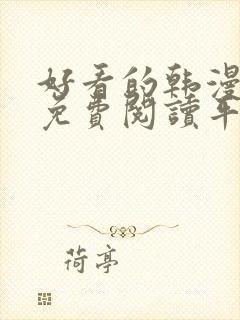 好看的韩漫
免費閱讀平
荷亭